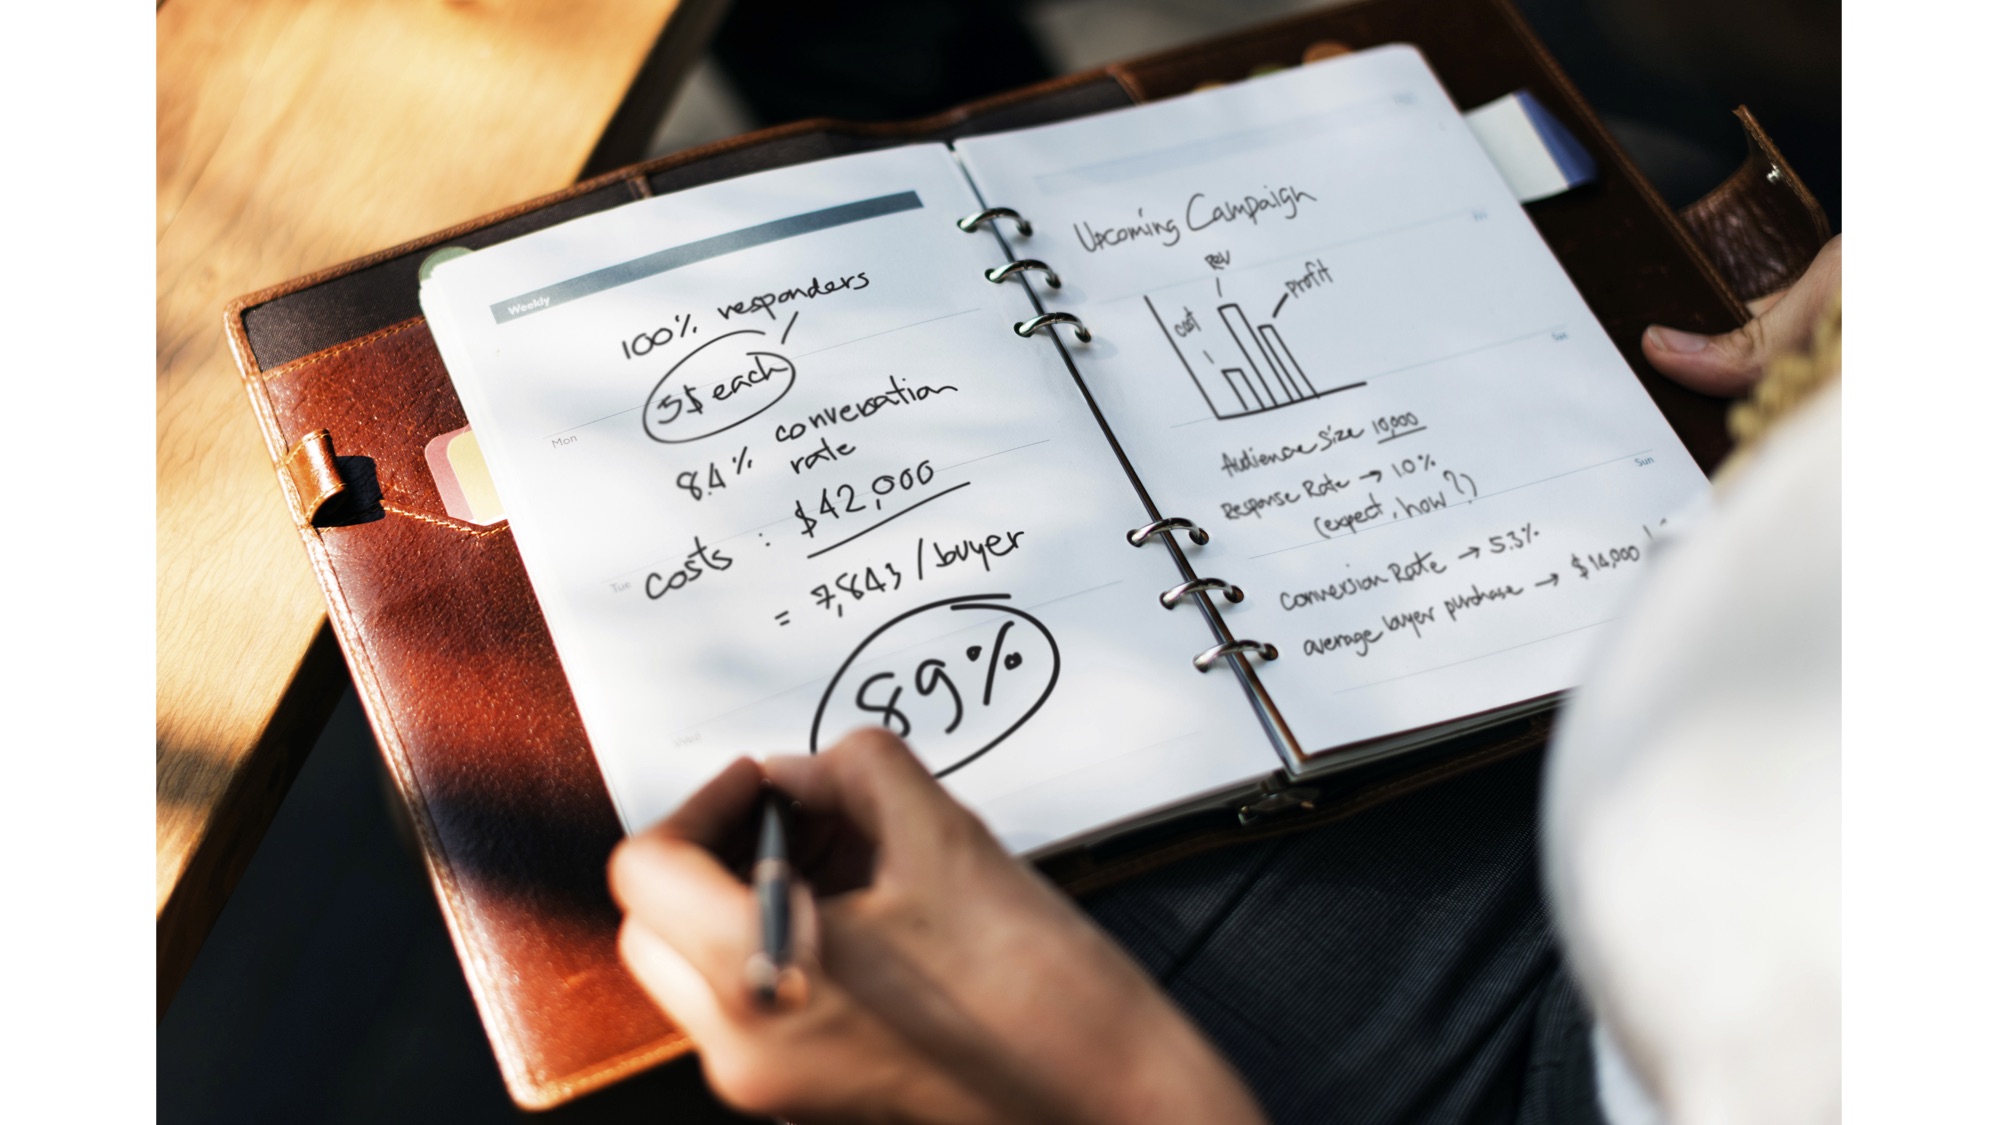 Weekly
100% responders
5$ each
8.4% conversation
rate
Mon
costs : $42,000
Tue
= 7,843 / buyer
89%
Upcoming Campaign
Rev
Profit
cost
Fri
Sat
Audience Size 10,000
Sun
Response Rate → 10%
(expect, how?)
Conversion Rate → 5.3%
average buyer purchase → $14,000